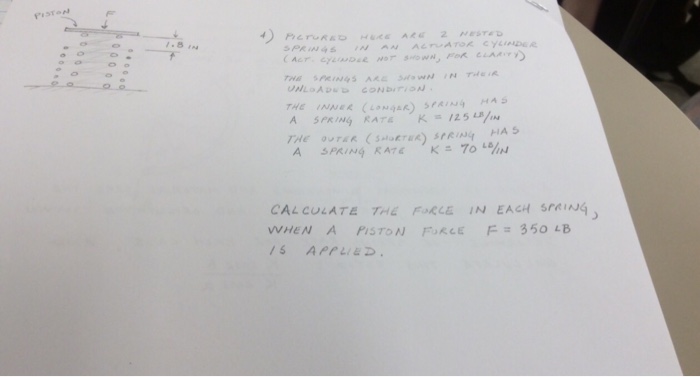 PISTON F
1.8 IN
1) PICTURED HERE ARE 2 NESTED
SPRINGS IN AN ACTUATOR CYLINDER
(ACT. CYLINDER NOT SHOWN, FOR CLARITY)
THE SPRINGS ARE SHOWN IN THEIR
UNLOADED CONDITION.
THE INNER (LONGER) SPRING HAS
A SPRING RATE K = 125 LB/IN
THE OUTER (SHORTER) SPRING HAS
A SPRING RATE K = 70 LB/IN
CALCULATE THE FORCE IN EACH SPRING,
WHEN A PISTON FORCE F = 350 LB
IS APPLIED.